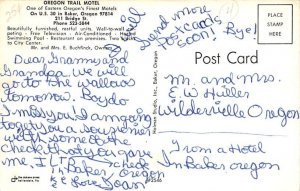 OREGON TRAIL MOTEL
One of Eastern Oregon's Finest Motels
On U.S. 30 in Baker, Oregon 97814
211 Bridge St.
Phone 523-5844
Beautifully furnished, restful units. Wall-to-wall carpeting - Free Television - Air-Conditioned - Heated Swimming Pool - Restaurant on premises. Two blocks to City Center.
Mr. and Mrs. E. Buchfinck, Owners
Send more
post cards
soon. Bye!
Dear Granny and
Grandpa, we will
go to the wallowas
tomorrow. Boy do
I miss you. I am going
to get you a souvenier
with some of the
check that you gave
me. I
in Baker, Oregon
Love
Post Card
PLACE
STAMP
HERE
Mr. and Mrs.
E W Hiller
Wilderville Oregon
From a Motel
In Baker Oregon